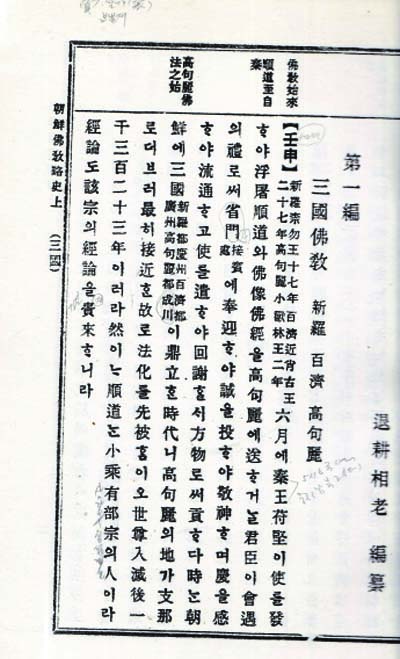 退耕相老 編纂
第一編
三國佛敎 新羅 百濟 高句麗
佛敎始來
順道至自
秦
【壬申】新羅奈勿王十七年百濟近肖古王
二十七年高句麗小獸林王二年六月에秦王苻堅이使를發
ᄒᆞ야浮屠順道와佛像佛經을高句麗에送ᄒᆞ거ᄂᆞᆯ君臣이會遇
의禮로써省門接賓處에奉迎ᄒᆞ야誠을投ᄒᆞ야敬神ᄒᆞ며慶을感
ᄒᆞ야流通ᄒᆞ고使를遣ᄒᆞ야回謝ᄒᆞᆯᄉᆡ方物로써貢ᄒᆞ다時ᄂᆞᆫ朝
高句麗佛
法之始
鮮에三國新羅都慶州百濟都
廣州高句麗都成川이鼎立ᄒᆞᆫ時代니高句麗의地가支那
로더브러最히接近ᄒᆞᆫ故로法化를先被홈이오世尊入滅後一
千三百二十三年이러라然이ᄂᆞ順道ᄂᆞᆫ小乘有部宗의人이라
經論도該宗의經論을賚來ᄒᆞ니라
朝鮮佛敎略史上 (三國)